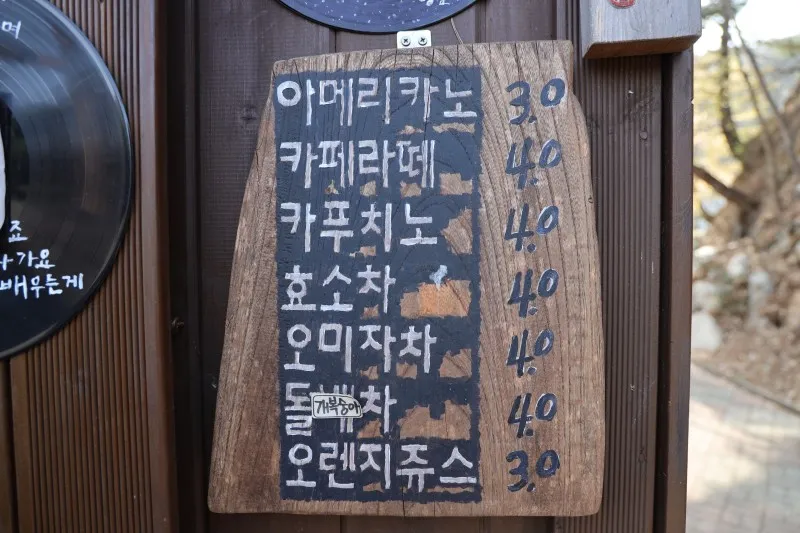 며
죠
가요
배우는게
아메리카노 3.0
카페라떼 4.0
카푸치노 4.0
효소차 4.0
오미자차 4.0
돌배차 4.0
개복숭아
오렌지쥬스 3.0